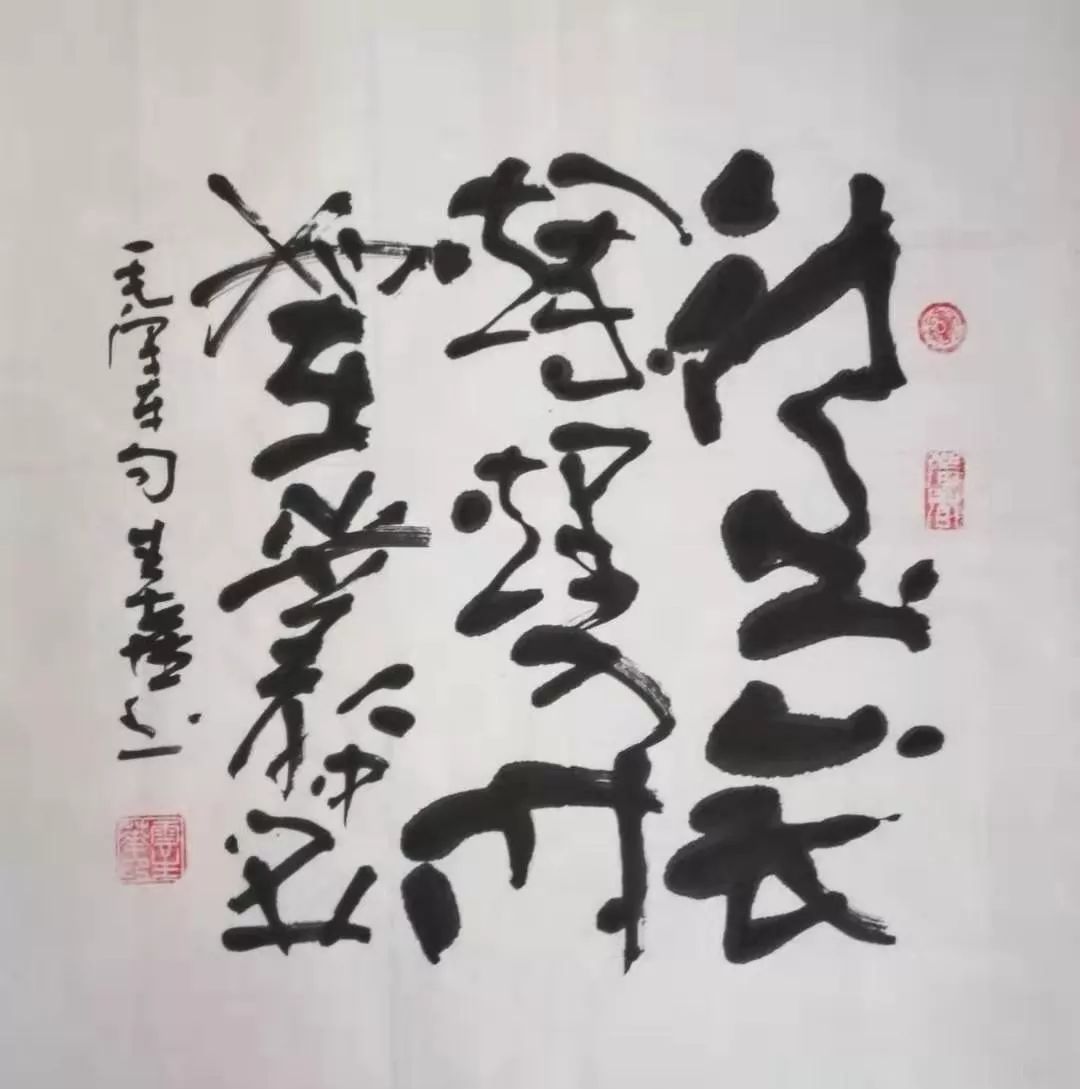 待到山花
烂熳时
她在丛中笑
毛泽东句